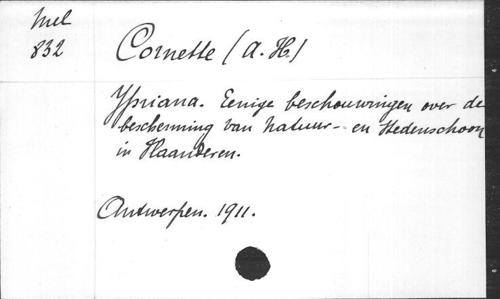 Mel
832
Cornette (A. H.)
Ypriana. Eenige beschouwingen over de
bescherming van natuur- en stedenschoon
in Vlaanderen.
Antwerpen. 1911.